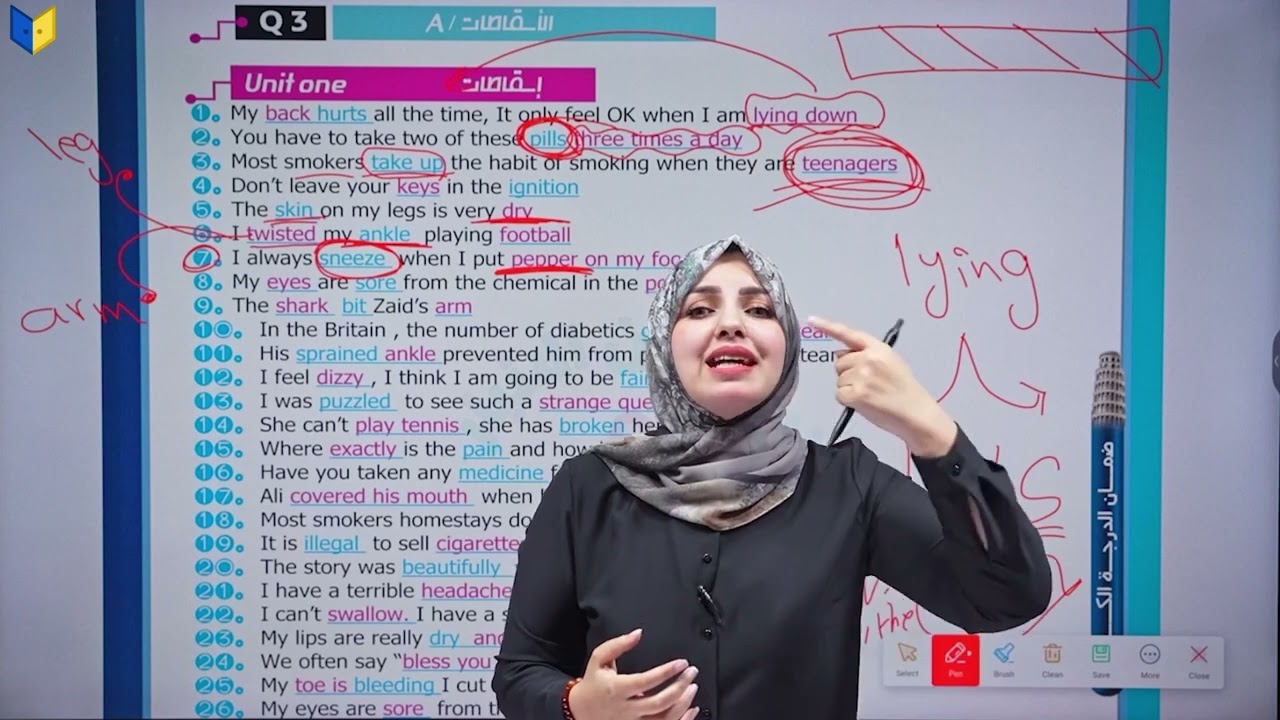 Q 3
A / الأنـقـاصات
Unit one إنـقـاصات
1. My back hurts all the time, It only feel OK when I am lying down
2. You have to take two of these pills three times a day
3. Most smokers take up the habit of smoking when they are teenagers
4. Don't leave your keys in the ignition
5. The skin on my legs is very dry
6. I twisted my ankle playing football
7. I always sneeze when I put pepper on my foo
8. My eyes are sore from the chemical in the po
9. The shark bit Zaid's arm
10. In the Britain , the number of diabetics
11. His sprained ankle prevented him from p tean
12. I feel dizzy , I think I am going to be fai
13. I was puzzled to see such a strange que
14. She can't play tennis , she has broken he
15. Where exactly is the pain and how
16. Have you taken any medicine f
17. Ali covered his mouth when h
18. Most smokers homestays do
19. It is illegal to sell cigarette
20. The story was beautifully
21. I have a terrible headache
22. I can't swallow. I have a s
23. My lips are really dry and
24. We often say "bless you"
25. My toe is bleeding I cut
26. My eyes are sore from th
leg
arm
lying
S
ضمــان الدرجــة الكـ
Select Pen Brush Clean Save More Close